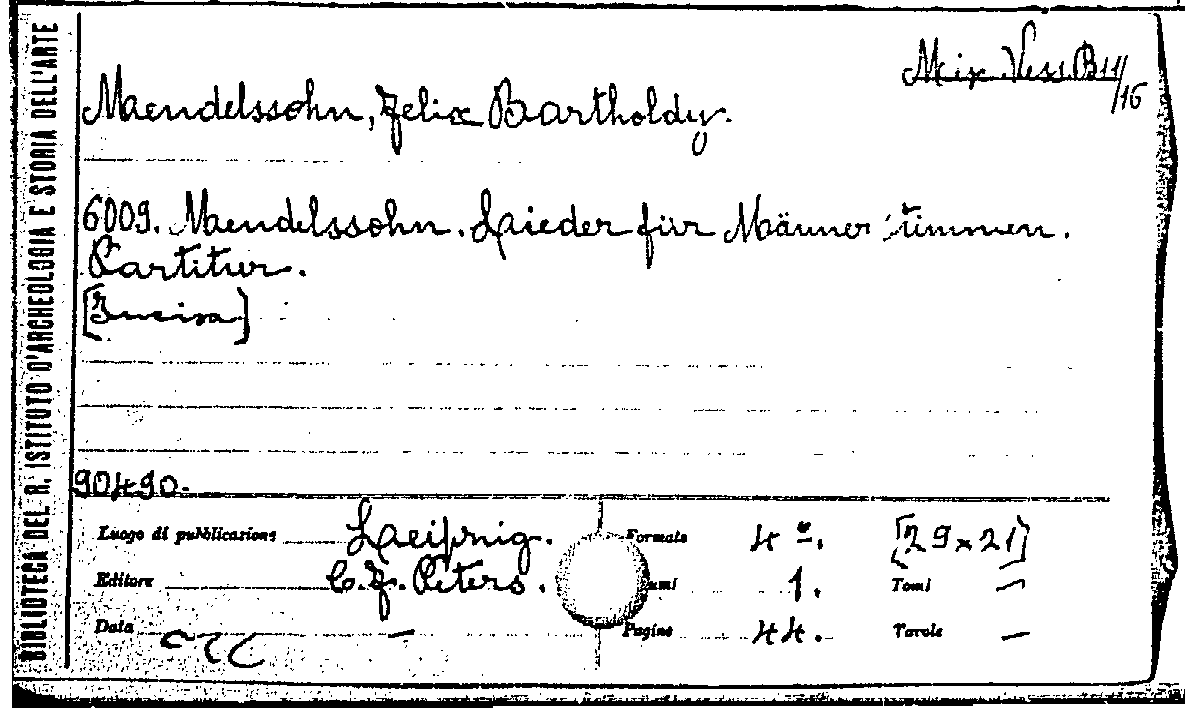 BIBLIOTECA DEL R. ISTITUTO D'ARCHEOLOGIA E STORIA DELL'ARTE
Mix. Vess. B 11/16
Mendelssohn, Felix Bartholdy.
6009. Mendelssohn. Lieder für Männerstimmen.
Partitur.
[Incisa]
90490.
Luogo di pubblicazione Leipzig. Formato 4º. [29x21]
Editore C. F. Peters. umi 1. Tomi —
Data — Pagine 44. Tavole —